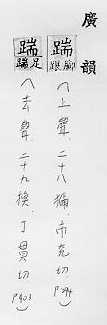 廣韻
踹 腳跟 (上聲.二十八獮.市兗切 P294)
踹 足踹 (去聲.二十九換.丁貫切 P403)